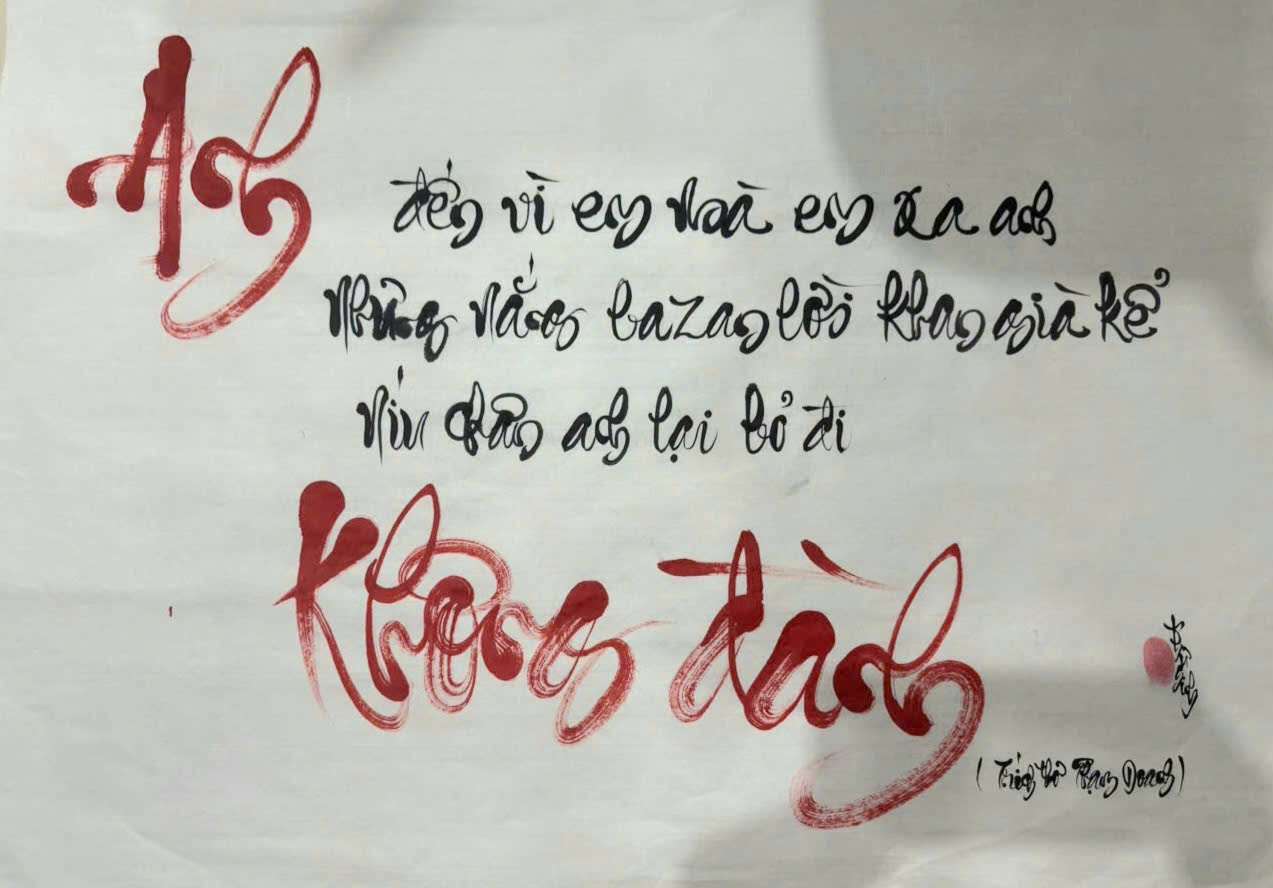 Anh
đến vì em mà em xa anh
Những nắng bazan lời khan già kể
Níu chân anh lại bỏ đi
Không đành
(Trích thơ Phạm Doanh)